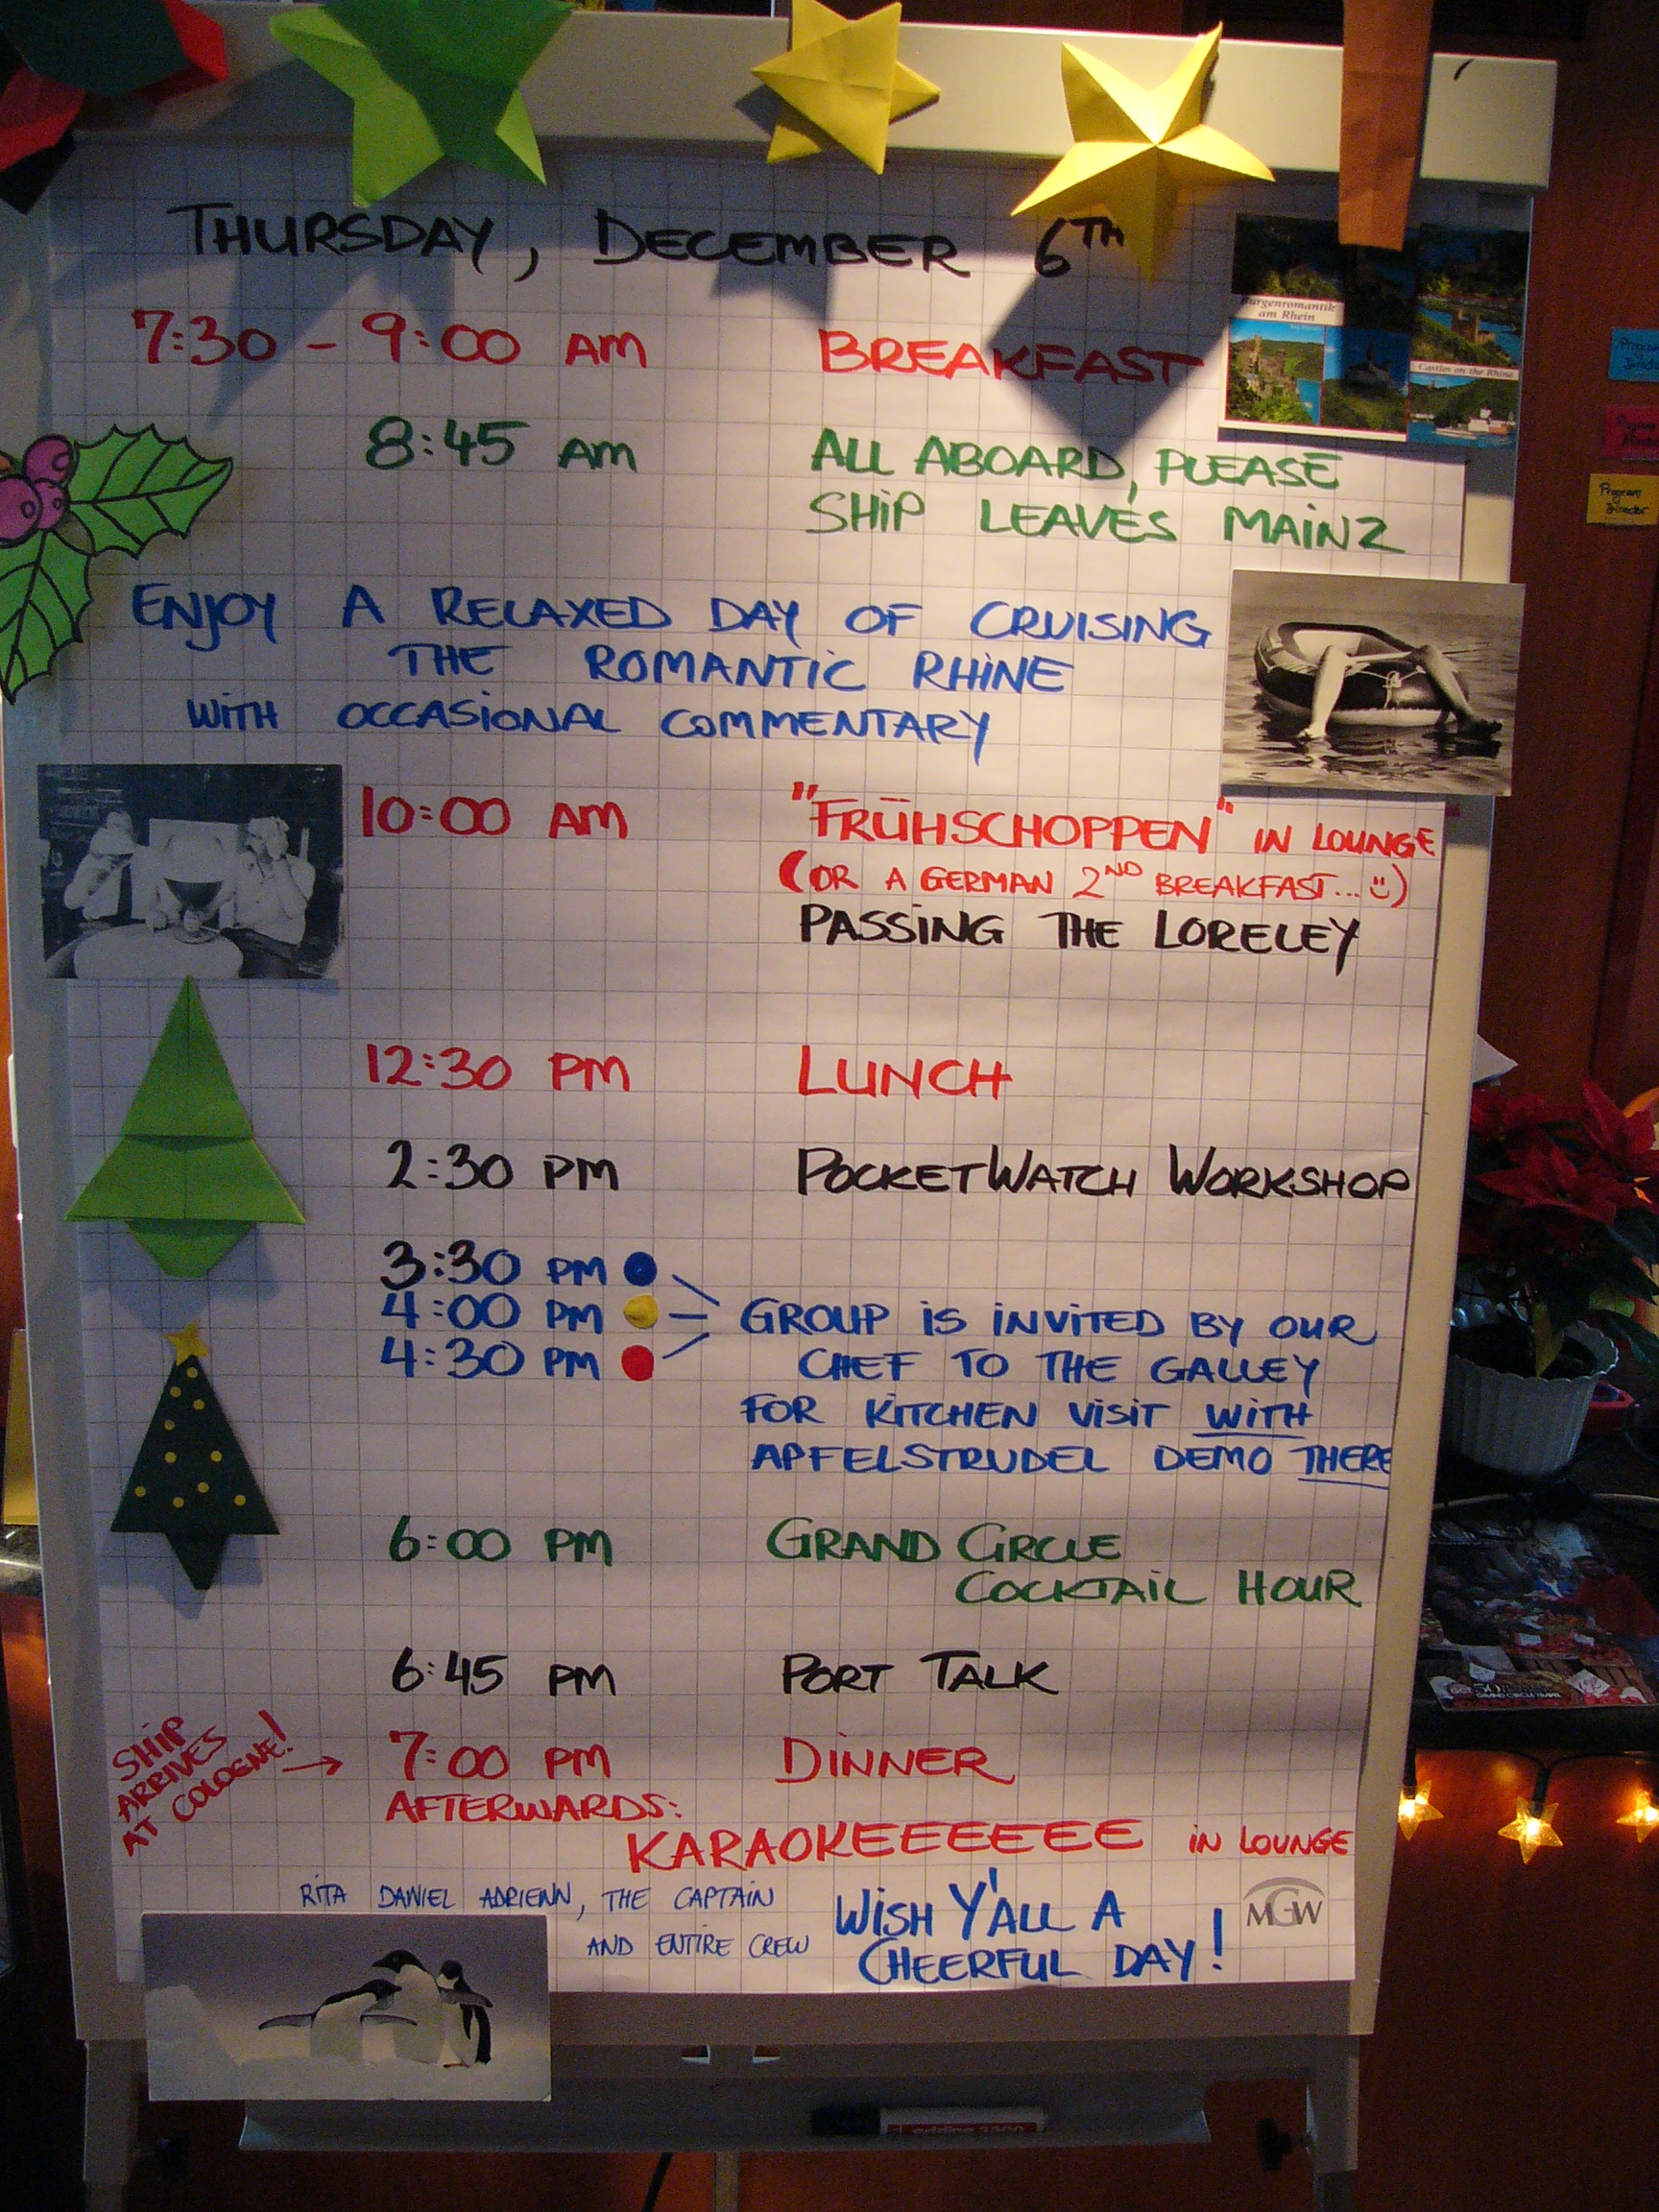 THURSDAY, DECEMBER 6TH
7:30 - 9:00 AM BREAKFAST
Burgenromantik
am Rhein
Castles on the Rhine
8:45 AM ALL ABOARD, PLEASE
SHIP LEAVES MAINZ
ENJOY A RELAXED DAY OF CRUISING
THE ROMANTIC RHINE
WITH OCCASIONAL COMMENTARY
10:00 AM "FRÜHSCHOPPEN" IN LOUNGE
(OR A GERMAN 2ND BREAKFAST... :))
PASSING THE LORELEY
12:30 PM LUNCH
2:30 PM POCKETWATCH WORKSHOP
3:30 PM
4:00 PM GROUP IS INVITED BY OUR
4:30 PM CHEF TO THE GALLEY
FOR KITCHEN VISIT WITH
APFELSTRUDEL DEMO THERE
6:00 PM GRAND CIRCLE
COCKTAIL HOUR
6:45 PM PORT TALK
SHIP
ARRIVES
AT COLOGNE! →
7:00 PM DINNER
AFTERWARDS:
KARAOKEEEEEEE IN LOUNGE
RITA DANIEL ADRIENN, THE CAPTAIN
AND ENTIRE CREW
WISH Y'ALL A
CHEERFUL DAY!
MGW
Program
Director
edding